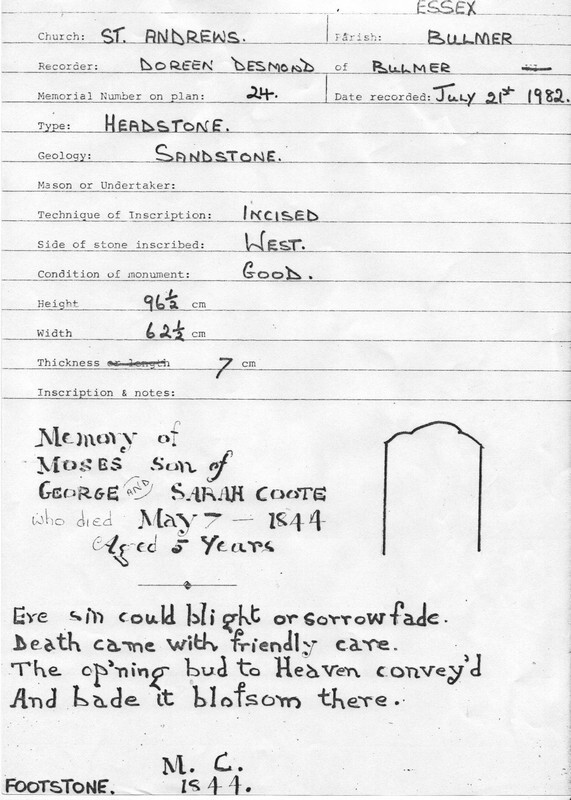 ESSEX
Church: ST. ANDREWS. Parish: BULMER
Recorder: DOREEN DESMOND of BULMER
Memorial Number on plan: 24. Date recorded: JULY 21st 1982.
Type: HEADSTONE.
Geology: SANDSTONE.
Mason or Undertaker:
Technique of Inscription: INCISED
Side of stone inscribed: WEST.
Condition of monument: GOOD.
Height 96½ cm
Width 62½ cm
Thickness or length 7 cm
Inscription & notes:
Memory of
MOSES Son of
GEORGE AND SARAH COOTE
who died May 7 — 1844
Aged 5 Years
Ere sin could blight or sorrow fade.
Death came with friendly care.
The op'ning bud to Heaven convey'd
And bade it bloſsom there.
M. C.
FOOTSTONE. 1844.